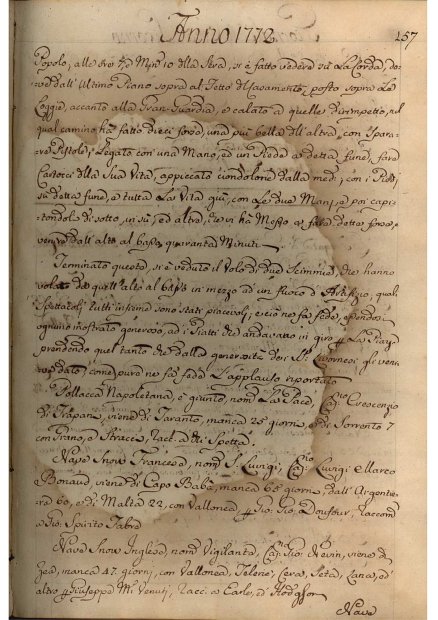 Anno 1772
257
Popolo, alle ore 7, e Min. 10 della Sera, si è fatto vedere sù La Corda, do-
ve dall'Ultimo Piano sopra al Tetto di Casamento, posto sopra Le
Loggie, accanto alla Gran-Guardia, e calato a quelle dirimpetto, nel
qual camino hà fatto dieci forze, una più bella dell'altra, con Sparar
Pistole, Legato con una Mano, ed un Piede a detta fune, fare
della Sua Vita, appiccato ciondolone dalla med.; con i Piedi
sù detta fune, e tutta La Vita giù, con Le due Mani, e poi
di sotto, in sù, ed altre, che vi hà Messo a fare dette forze, e
venire dall'alto al basso quaranta Minuti.
Terminato questo, si è veduto il Volo di due Scimmie, che hanno
volato da quell'alto al basso in mezzo ad un fuoco d'Artifizio, quali
Spettacoli tutti insieme sono stati piacevoli, e ciò ne fà fede, essendosi
ognuno mostrato generoso, ai Piatti che andavano in giro La Piazza
prendendo quel tanto che dalla generosità dei SS. Livornesi gli veni-
va dato; come pure ne fà fede L'applauso riportato
Pollacca Napoletana, è giunto, nom. La Pace, Cap. Crescenzio
di Trapani, viene di Taranto, manca 25 giorni, e di Sorrento 7
con Grano, e Stracci, Racc. a SS. Spetta.
Nave Snow Francese, nom. S. Luigi, Cap. Luigi Marco
Bonaud viene di Capo Babà, manca 65 giorni, dall'Argentie-
ra 60, e di Malta 22, con Vallonea Gio. Gio. Doufour, Raccom.
a Gio. Spirito Fabre
Nave Snow Inglese, nom. Vigilante, Cap. Gio. Nevin, viene di
Zea, manca 47 giorni, con Vallonea, Telerie, Cera, Seta, Lana, ed
altro Giuseppe M. Venuti, Racc. a Earle, ed Hodgson
Nave